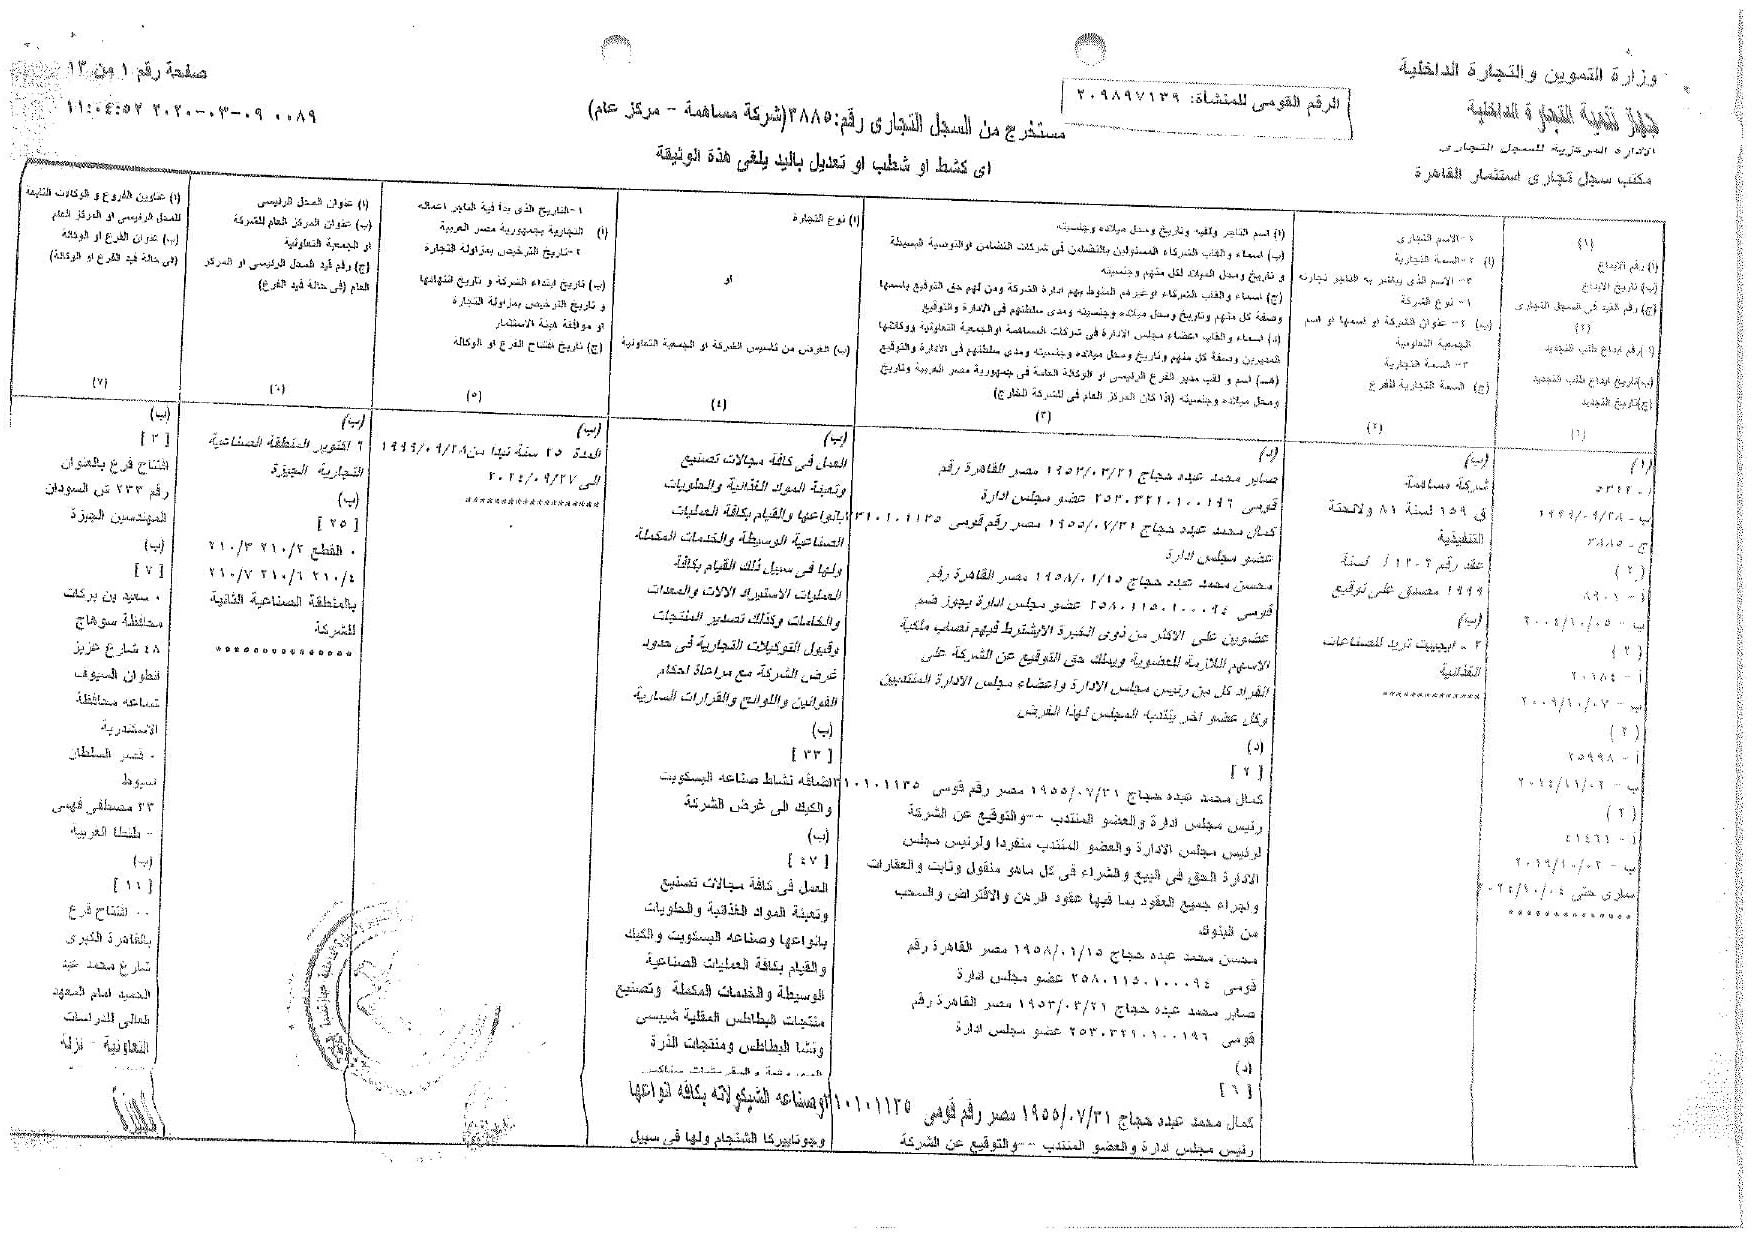 وزارة التموين والتجارة الداخلية
جهاز تنمية التجارة الداخلية
الادارة المركزية للسجل التجارى
مكتب سجل تجارى استثمار القاهرة
الرقم القومى للمنشاة: ٢٠٩٨٩٧١٣٩
مستخرج من السجل التجارى رقم:٣٨٨٥(شركة مساهمة - مركز عام)
اى كشط او شطب او تعديل باليد يلغى هذة الوثيقة
صفحة رقم ١ من ١٣
٠٠٨٩ ٢٠٢٠-٠٣-٠٩ ١١:٠٤:٥٢
(١)
(أ) رقم الايداع
(ب) تاريخ الايداع
(ج) رقم القيد فى السجل التجارى
(٢)
(أ) رقم ايداع طلب التجديد
(ب)تاريخ ايداع طلب التجديد
(ج)تاريخ التجديد
(١)
١- الاسم التجارى
(أ) ٢- السمة التجارية
٣- الاسم الذى يباشر به التاجر تجارته
١- نوع الشركة
(ب) ٢- عنوان الشركة او اسمها او اسم
الجمعية التعاونية
٣- السمة التجارية
(ج) السمة التجارية للفرع
(٢)
(أ) اسم التاجر ولقبه وتاريخ ومحل ميلاده وجنسيته
(ب) اسماء والقاب الشركاء المسئولين بالتضامن فى شركات التضامن اوالتوصية البسيطة
و تاريخ ومحل الميلاد لكل منهم وجنسيته
(ج) اسماء والقاب الشركاء اوغيرهم المنوط بهم ادارة الشركة ومن لهم حق التوقيع باسمها
وصفة كل منهم وتاريخ ومحل ميلاده وجنسيته ومدى سلطتهم فى الادارة والتوقيع
(د) اسماء والقاب اعضاء مجلس الادارة فى شركات المساهمة اوالجمعية التعاونية ووكلائها
المديرين وصفة كل منهم وتاريخ ومحل ميلاده وجنسيته ومدى سلطتهم فى الادارة والتوقيع
(هـ) اسم و لقب مدير الفرع الرئيسى او الوكالة العامة فى جمهورية مصر العربية وتاريخ
ومحل ميلاده وجنسيته (اذا كان المركز العام فى للشركة الخارج)
(٣)
(أ) نوع التجارة
او
(ب) الغرض من تاسيس الشركة او الجمعية التعاونية
(٤)
١-التاريخ الذى بدأ فية التاجر اعماله
(أ) التجارية بجمهورية مصر العربية
٢-تاريخ الترخيص بمزاولة التجارة
(ب) تاريخ ابتداء الشركة و تاريخ انتهائها
و تاريخ الترخيص بمزاولة التجارة
او موافقة هيئة الاستثمار
(ج) تاريخ افتتاح الفرع او الوكالة
(٥)
(أ) عنوان المحل الرئيسى
(ب) عنوان المركز العام للشركة
او الجمعية التعاونية
(ج) رقم قيد المحل الرئيسى او المركز
العام (فى حالة قيد الفرع)
(٦)
(أ) عناوين الفروع و الوكالات التابعة
للمحل الرئيسى او المركز العام
(ب) عنوان الفرع او الوكالة
(فى حالة قيد الفرع او الوكالة)
(٧)
(١)
أ - ٥٣٤٢
ب - ١٩٩٩/٠٩/٢٨
ج - ٣٨٨٥
(٢)
أ - ٨٩٠١
ب - ٢٠٠٤/١٠/٠٥
(٢)
أ - ٢٠١٨٤
ب - ٢٠٠٩/١٠/٠٧
(٢)
أ - ٢٥٩٩٨
ب - ٢٠١٤/١١/٠٢
(٢)
أ - ٤١٤٦١
ب - ٢٠١٩/١٠/٠٢
سارى حتى ٢٠٢٤/١٠/٠٤
**************
(ب)
شركة مساهمة
ق ١٥٩ لسنة ٨١ ولائحتة
التنفيذية
عقد رقم ١٢٠٦ / لسنة
١٩٩٩ مصدق على توقيع
(ب)
٢ - ايجيبت تريد للصناعات
الغذائية
**************
(د)
صابر محمد عبده حجاج ١٩٥٣/٠٣/٢١ مصر القاهرة رقم
قومى ٢٥٣٠٣٢١٠١٠٠١٩٦ عضو مجلس ادارة
كمال محمد عبده حجاج ١٩٥٥/٠٧/٣١ مصر رقم قومى ٣١٠١٠١١٣٥
عضو مجلس ادارة
محسن محمد عبده حجاج ١٩٥٨/٠١/١٥ مصر القاهرة رقم
قومى ٢٥٨٠١١٥٠١٠٠٠٩٤ عضو مجلس ادارة يجوز ضم
عضوين على الاكثر من ذوى الخبرة الايشترط فيهم نصاب ملكية
الاسهم اللازمة للعضوية ويملك حق التوقيع عن الشركة على
انفراد كل من رئيس مجلس الادارة واعضاء مجلس الادارة المنتدبين
وكل عضو اخر ينتدبه المجلس لهذا الغرض
(د)
[ ٢ ]
كمال محمد عبده حجاج ١٩٥٥/٠٧/٣١ مصر رقم قومى ٣١٠١٠١١٣٥
رئيس مجلس ادارة والعضو المنتدب --والتوقيع عن الشركة
لرئيس مجلس الادارة والعضو المنتدب منفردا ولرئيس مجلس
الادارة الحق فى البيع والشراء فى كل ماهو منقول وثابت والعقارات
واجراء جميع العقود بما فيها عقود الرهن والاقتراض والسحب
من البنوك
محسن محمد عبده حجاج ١٩٥٨/٠١/١٥ مصر القاهرة رقم
قومى ٢٥٨٠١١٥٠١٠٠٠٩٤ عضو مجلس ادارة
صابر محمد عبده حجاج ١٩٥٣/٠٣/٢١ مصر القاهرة رقم
قومى ٢٥٣٠٣٢١٠١٠٠١٩٦ عضو مجلس ادارة
(د)
[ ٦ ]
كمال محمد عبده حجاج ١٩٥٥/٠٧/٣١ مصر رقم قومى ١٠١٠١١٣٥
رئيس مجلس ادارة والعضو المنتدب --والتوقيع عن الشركة
(ب)
العمل فى كافة مجالات تصنيع
وتعبئة المواد الغذائية والحلويات
بانواعها والقيام بكافة العمليات
الصناعية الوسيطة والخدمات المكملة
ولها فى سبيل ذلك القيام بكافة
العمليات الاستيراد الالات والمعدات
والخامات وكذلك تصدير المنتجات
وقبول التوكيلات التجارية فى حدود
غرض الشركة مع مراعاة احكام
القوانين واللوائح والقرارات السارية
(ب)
[ ٣٣ ]
اضافه نشاط صناعه البسكويت
والكيك الى غرض الشركة
(ب)
[ ٤٧ ]
العمل فى كافة مجالات تصنيع
وتعبئة المواد الغذائية والحلويات
بانواعها وصناعه البسكويت والكيك
والقيام بكافة العمليات الصناعية
الوسيطة والخدمات المكملة وتصنيع
منتجات البطاطس المقلية شيبسى
ونشا البطاطس ومنتجات الذرة
وصناعه الشيكولاته بكافه انواعها
ولها فى سبيل
(ب)
المدة ٢٥ سنة تبدا من١٩٩٩/٠٩/٢٨
الى ٢٠٢٤/٠٩/٢٧
****************
(ب)
٦ اكتوبر المنطقة الصناعية
التجارية الجيزة
(ب)
[ ٢٥ ]
٠ القطع ٢١٠/٢ ٢١٠/٣
٢١٠/٤ ٢١٠/٦ ٢١٠/٧
بالمنطقة الصناعية الثانية
للشركة
***************
(ب)
[ ٣ ]
افتتاح فرع بالعنوان
رقم ٢٣٣ ش السودان
المهندسين الجيزة
(ب)
[ ٧ ]
٠ سعيد بن بركات
محافظة سوهاج
٤٨ شارع عزيز
انطوان السيوف
شماعه محافظة
الاسكندرية
- قصر السلطان
اسيوط
٢٣ مصطفى فهمى
- طنطا الغربية
(ب)
[ ١١ ]
٠٠ افتتاح فرع
بالقاهرة الكبرى
شارع محمد عبد
الحميد امام المعهد
العالى للدراسات
التعاونية - نزلة